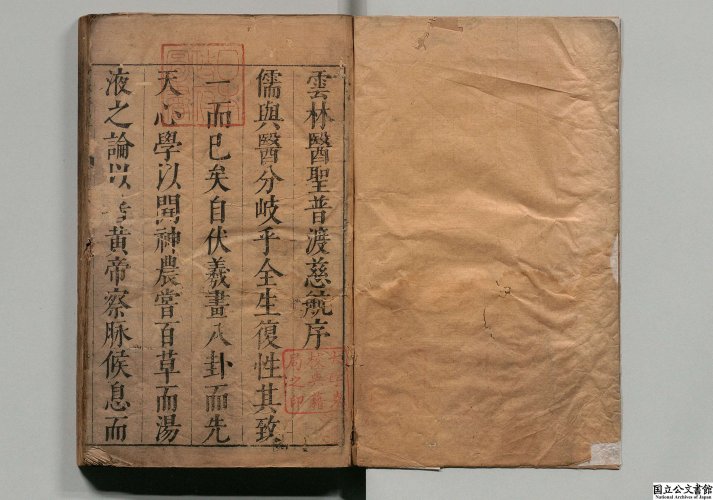 雲林醫聖普渡慈航序
儒與醫分岐乎全生復性其致
一而已矣自伏羲畫八卦而先
天心學以開神農嘗百草而湯
液之論以著黄帝察脉候息而
国立公文書館
National Archives of Japan